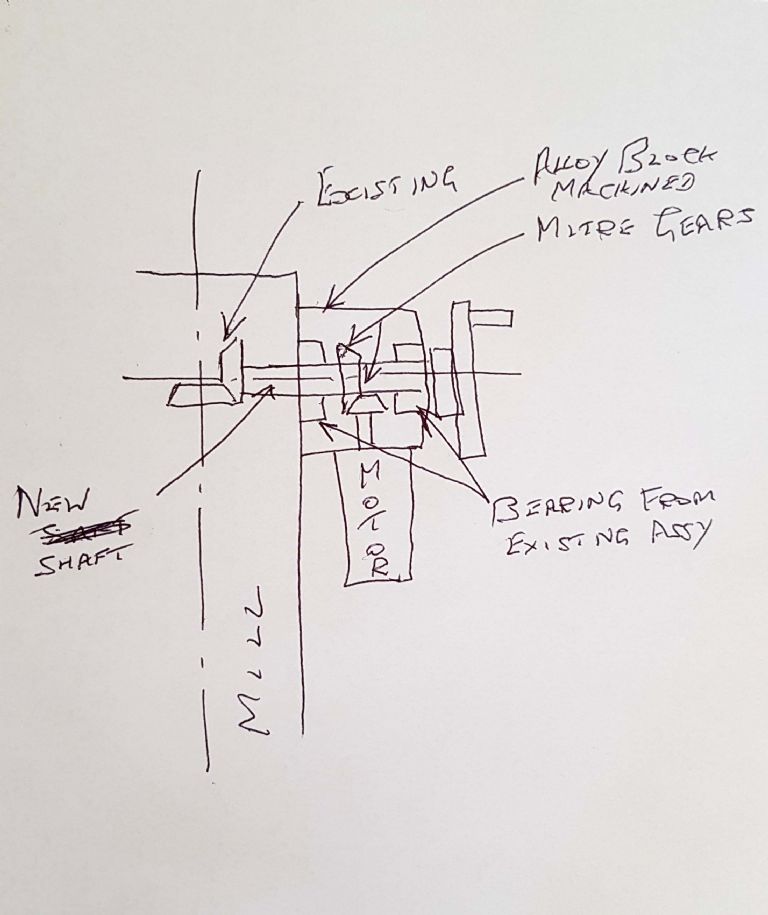 EXISTING
ALLOY BLOCK
MACHINED
MITRE GEARS
NEW
SHAFT
MOTOR
BEARING FROM
EXISTING ASSY
MILL